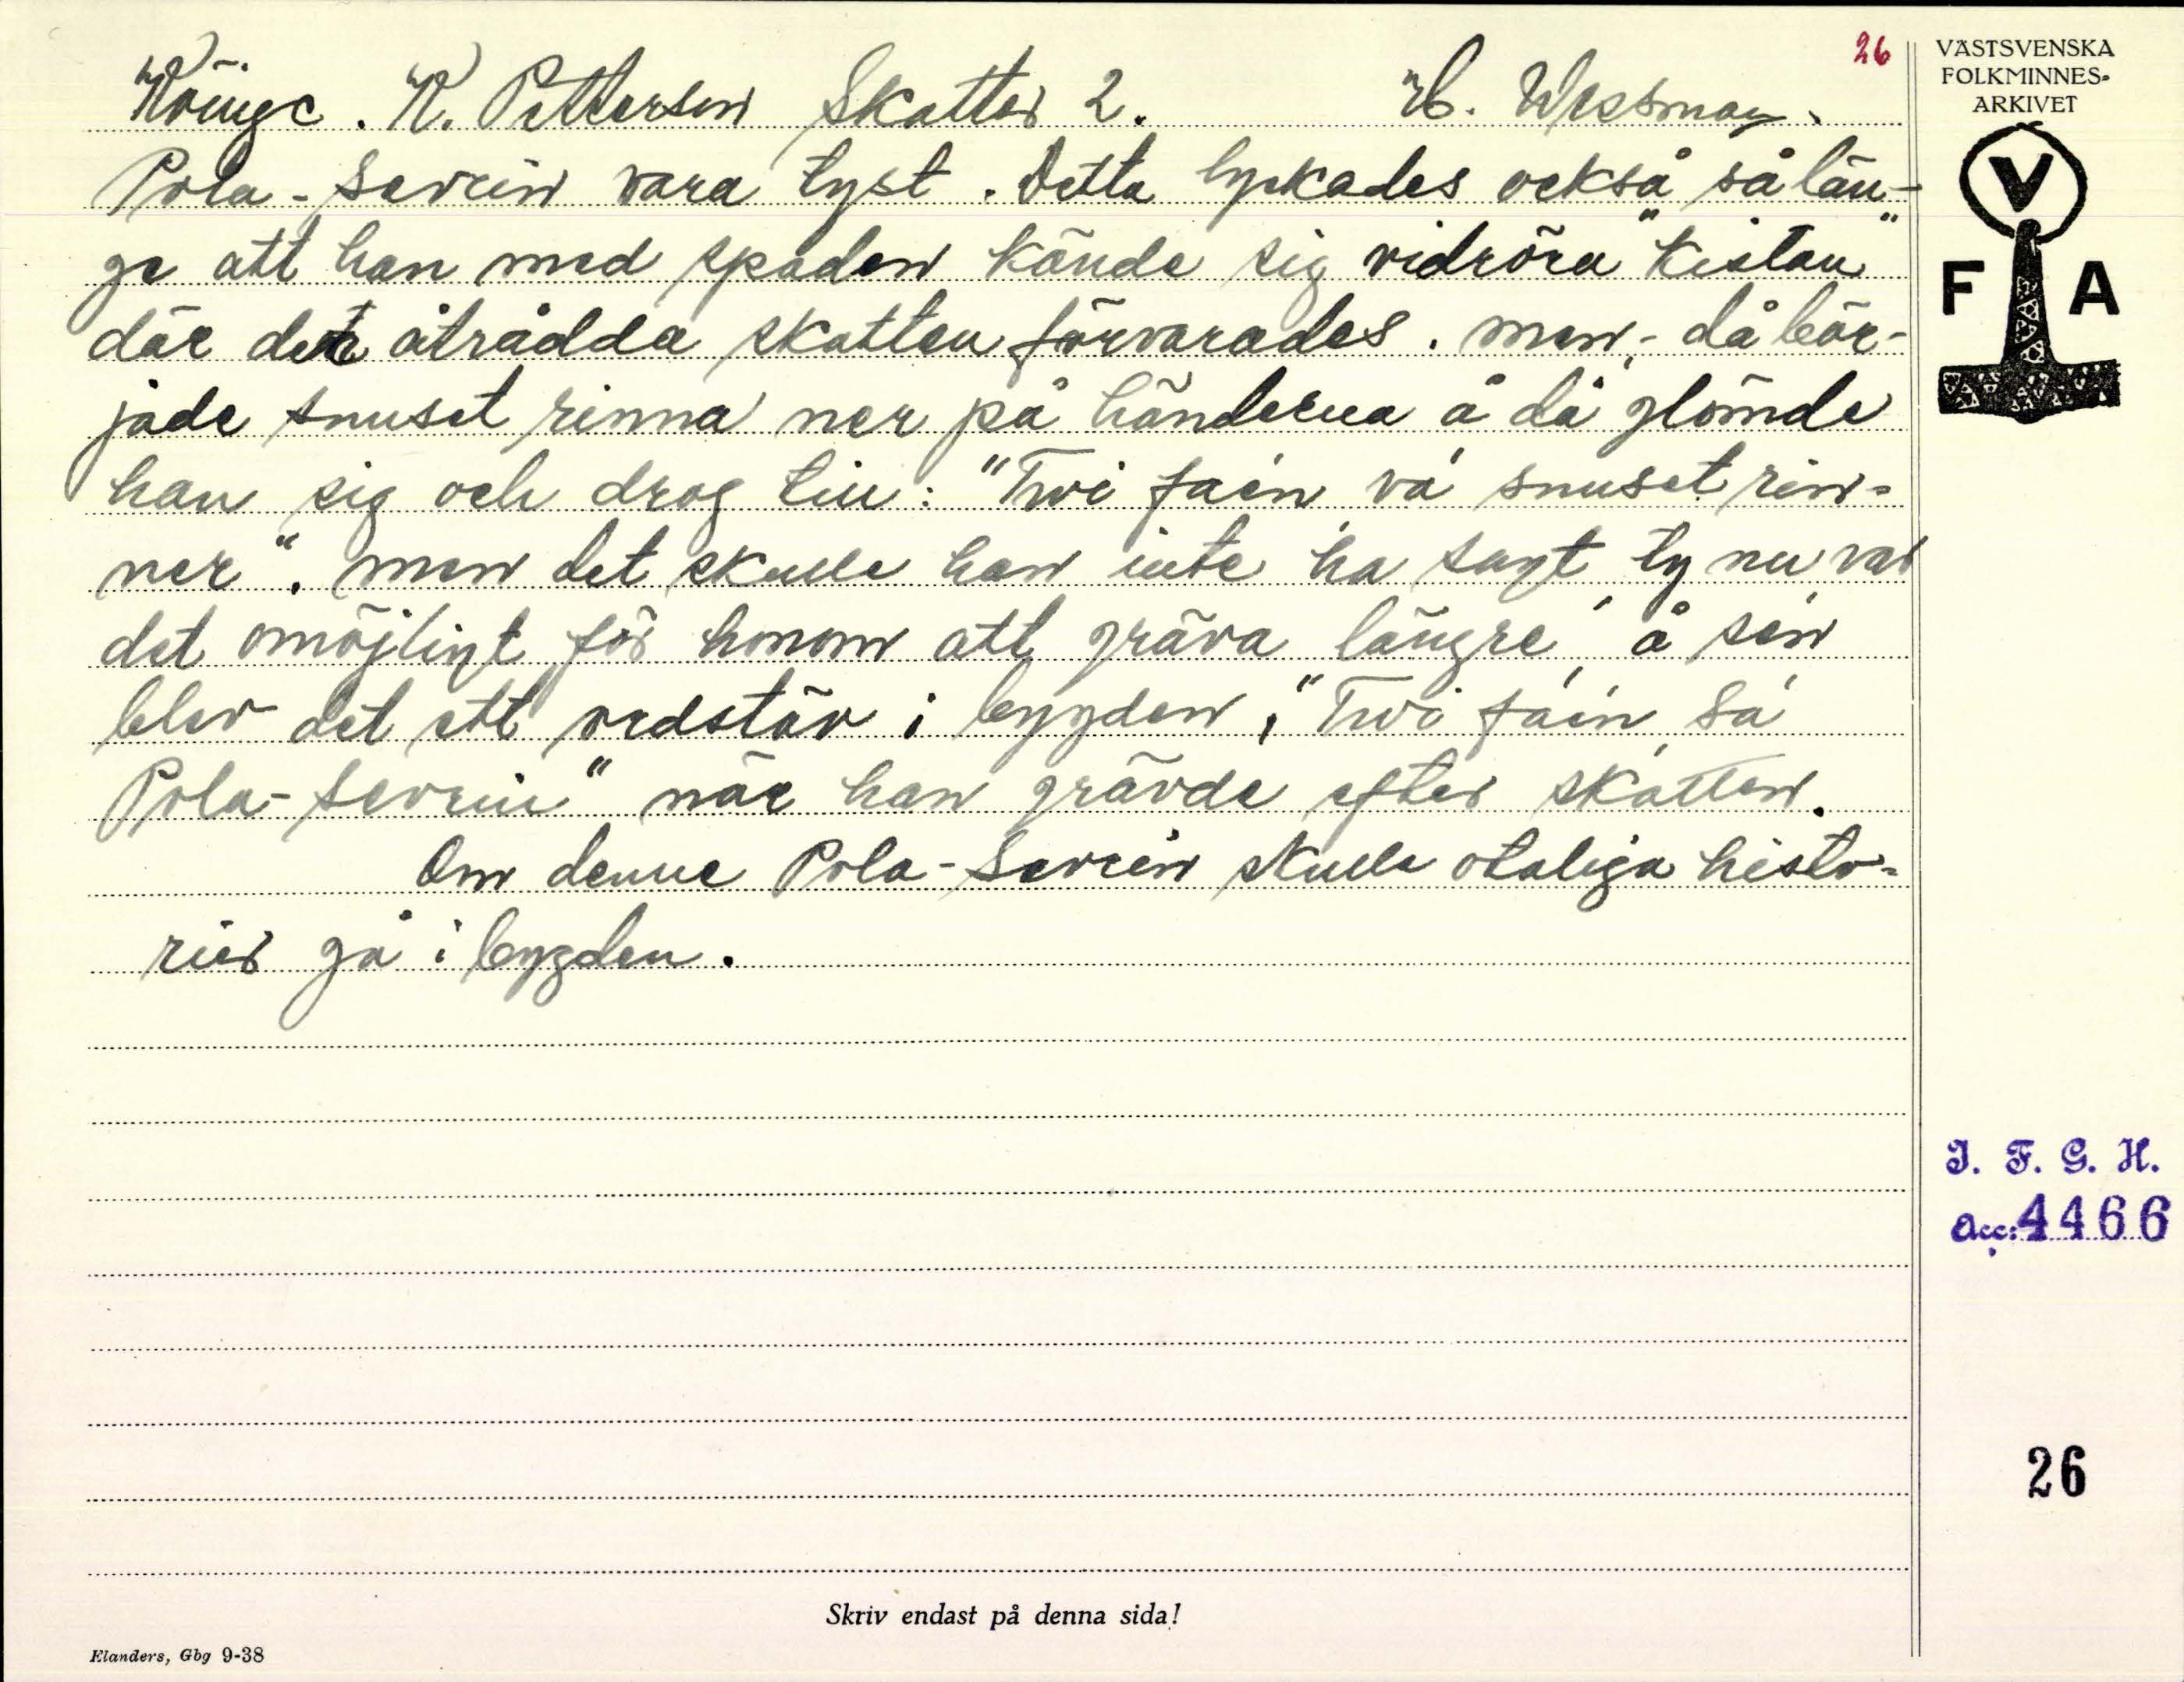 Köinge. K. Petterson Skatter 2. H. Wessman.
26
Pola-Severin vara tyst. Detta lyckades också så län-
ge att han med spaden kände sig vidröra "kistan"
där den åtrådda skatten förvarades. Men,- då bör-
jade snuset rinna ner på händerna å då glömde
han sig och drog till: "Twi faen va snuset rin-
ner". Men det skulle han inte ha sagt ty nu var
det omöjligt för honom att gräva längre, å sen
blev det ett ordstäv i bygden, "Twi faen, sa
Pola-Severin" när han grävde efter skatten.
Om denne Pola-Severin skulle otaliga histo-
rier gå i bygden.
VÄSTSVENSKA
FOLKMINNES-
ARKIVET
V
F A
I. F. G. H.
Acc: 4466
26
Skriv endast på denna sida!
Elanders, Gbg 9-38